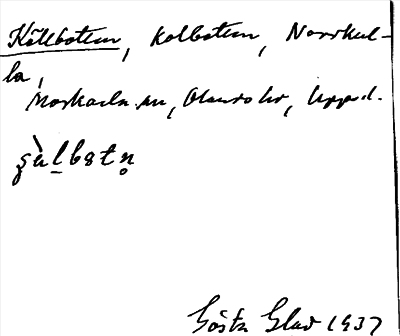 Källbotten, Kolbotten, Norrkul-
la,
Morkarla sn, Olands hd, Uppsl.
Gösta Glad 1937